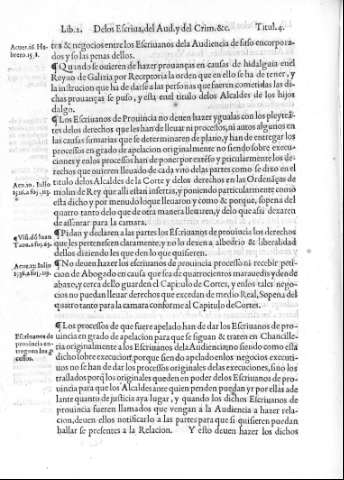 Lib.2. Delos Escriua, del Aud. y del Crim. &c. Titul. 4.
tra & negocios entre los Escriuanos dela Audiencia de si so encorporados
y so las penas dellos.
¶ Quando se ouieren de hazer prouanças en causas de hidalguia enel
Reyno de Galizia por Receptoria la orden que en ello se ha de tener, y
la instrucion que ha de darse a las personas que fueren cometidas las di-
chas prouanças se puso, y esta enel titulo delos Alcaldes de los hijos
dalgo.
¶ Los Escriuanos de Prouincia no deuen hazer ygualas con los pleyteã-
tes delos derechos que les han de lleuar ni processos, ni autos algunos en
las causas sumarias que se determinaren de plano, y han de entregar los
processos en grado de apelacion originalmente no siendo sobre execu-
ciones y enlos processos han de poner por extẽso y particularmente los de-
rechos que ouieren lleuado de cada vno delas partes como se dixo en el
titulo delos Alcaldes de la Corte y delos derechos en las Ordenãças de
molan de Rey que alli estan insertas, y poniendo particularmente como
esta dicho y por menudo lo que lleuaron y como & porque, sopena del
quatro tanto delo que de otra manera lleuaren, y delo que assi dexaren
de assentar para la camara.
¶ Pidan y declaren a las partes los Escriuanos de prouincia los derechos
que les pertenescen claramente, y no lo dexen a albedrio & liberalidad
dellos diziendo les que den lo que quisieren.
¶ No deuen hazer los escriuanos de prouincia processo ni recebir peti-
cion de Abogado en causa que sea de quatrocientos marauedis y dende
abaxo, y cerca dello guarden el Capitulo de Cortes, y enlos tales nego-
cios no puedan lleuar derechos que excedan de medio Real, Sopena del
quatro tanto para la camara conforme al Capitulo de Cortes.
¶ Los processos de que fuere apelado han de dar los Escriuanos de pro-
uincia en grado de apelacion para que se sigan & traten en Chancille-
ria originalmente a los Escriuanos dela Audiencia; no siendo como esta
dicho sobre execucion, porque siendo apelado enlos negocios executi-
uos no se han de dar los processos originales delas execuciones, sino los
traslados porq̃ los originales queden en poder delos Escriuanos de pro-
uincia para que los Alcaldes ante quien penden puedan yr por ellas ade
lante quanto de justicia aya lugar, y quando los dichos Escriuanos de
prouincia fueren llamados que vengan a la Audiencia a hazer rela-
cion, deuen ellos notificarlo a las partes para que si quisieren puedan
hallar se presentes a la Relacion. Y esto deuen hazer los dichos